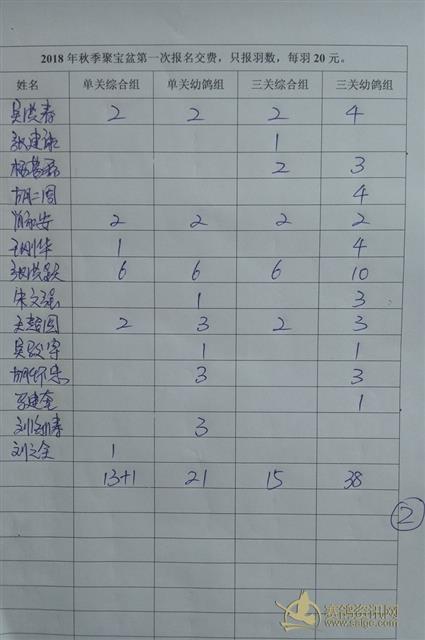 2018年秋季聚宝盆第一次报名交费，只报羽数，每羽20元。
姓名 单关综合组 单关幼鸽组 三关综合组 三关幼鸽组
吴洪春 2 2 2 4
张建 1
杨 2 3
胡二圆 4
肖永安 2 2 2 2
王刚华 1 4
张洪跃 6 6 6 10
宋文强 1 3
王超国 2 3 2 3
吴 1 1
胡怀忠 3 3
建奎 1
刘 春 3
刘文全 1
13+1 21 15 38
2
赛鸽资讯网
www.saigc.com